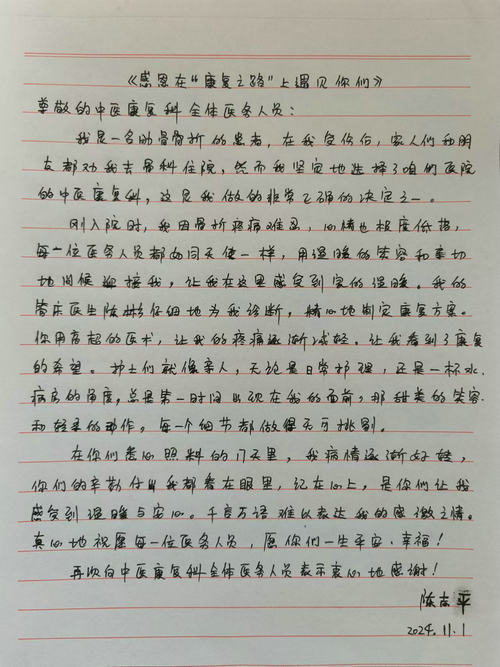 《感恩在“康复之路”上遇见你们》
尊敬的中医康复科全体医务人员：
我是一名肋骨骨折的患者，在我受伤后，家人们和朋
友都劝我去骨科住院，然而我坚定地选择了咱们医院
的中医康复科，这是我做的非常正确的决定之一。
刚入院时，我因骨折疼痛难忍，心情也极度低落，
每一位医务人员都如同天使一样，用温暖的笑容和亲切
地问候迎接我，让我在这里感受到家的温暖。我的
管床医生陈彬仔细地为我诊断，精心地制定康复方案。
你用高超的医术，让我的疼痛逐渐减轻。让我看到了康复
的希望。护士们就像亲人，无论是日常护理，还是一杯水.
病房的角度，总是第一时间出现在我的面前，那甜美的笑容.
和轻柔的动作。每一个细节都做得无可挑剔。
在你们悉心照料的17天里，我病情逐渐好转，
你们的辛勤付出我都看在眼里，记在心上，是你们让我
感受到温暖与安心。千言万语难以表达我的感激之情。
真心地祝愿每一位医务人员，愿你们一生平安、幸福！
再次向中医康复科全体医务人员表示衷心地感谢！
陈志平
2024.11.1